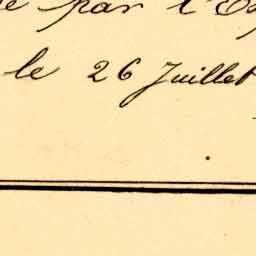 par l'E
le 26 Juillet